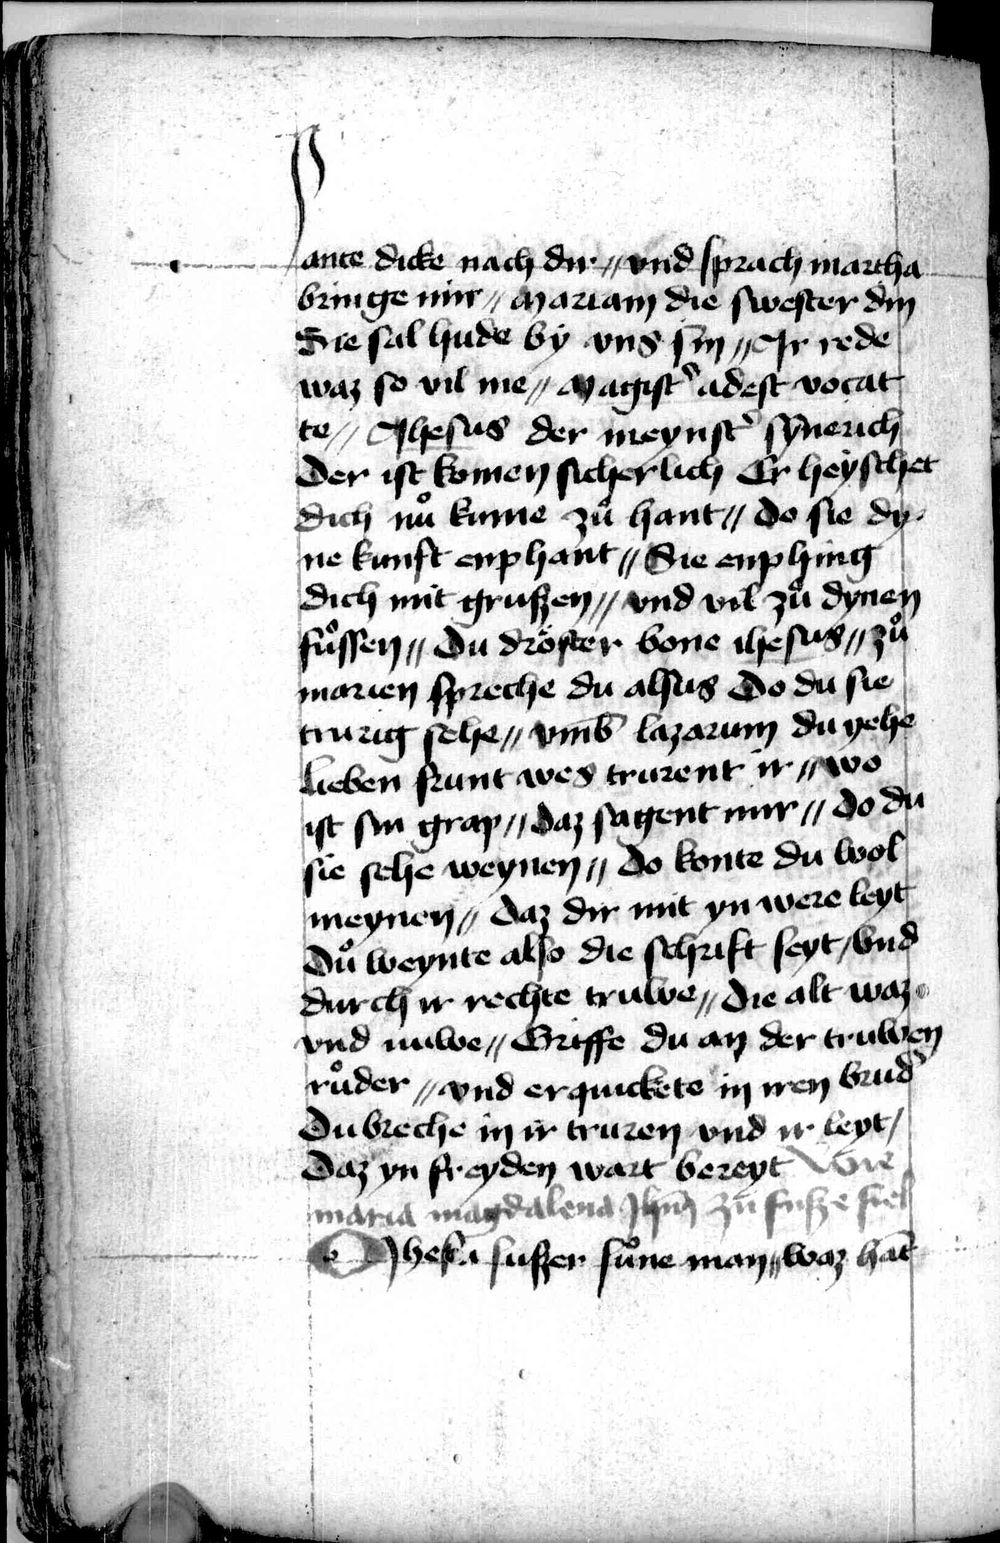 sante dicke nach dir // vnd sprach martha
bringe mir // Mariam die swester din
Sie sal hude by vns sin // Ir rede
waz so vil me // Magistˀ adest vocat
te // Ihesus der meynstˀ synerich
Der ist komen sicherlich Er heyschet
dich nuͦ kume zuͦ hant // Do sie dy-
ne kunft enphant // Sie enphing
dich mit grußen // vnd vil zuͦ dynen
fuͦssen // Du droͤster bone ihesus // zuͦ
marien spreche du alsus Do du sie
trurig sehe // vm̄b lazarum du yehe
lieben frunt wes trurent ir // wo
ist sin grap // Daz sagent mir // Do du
sie sehe weynen // Do konte du wol
meynen // Daz dir mit yn were leyt
Duͦ weynte also die schrift seyt / Vnd
durch ir rechte truwe // Die alt waz
vnd nuwe // Griffe du an der truwen
ruͦder // vnd erquickete in iren brudˀ
Du breche in ir truren vnd ir leyt /
Daz yn freyden wart bereyt Wie
maria magdalena Jhm̄ zuͦ fusze fiel
O Jhesu sußer suͦne man // waz hat